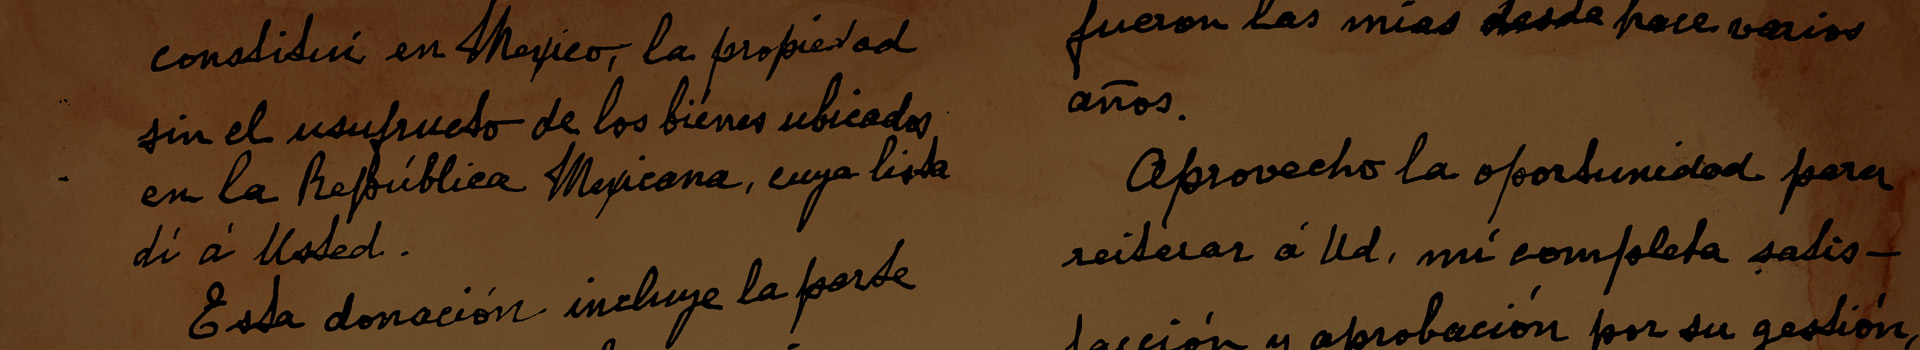 constitui en Mexico, la propiedad
sin el usufructo de los bienes ubicados
en la República Mexicana, cuya lista
dí á Usted.
Esta donación incluye la parte
fueron las mias desde hace varios
años.
Aprovecho la oportunidad para
reiterar á Ud. mi completa satis-
facción y aprobación por su gestión,